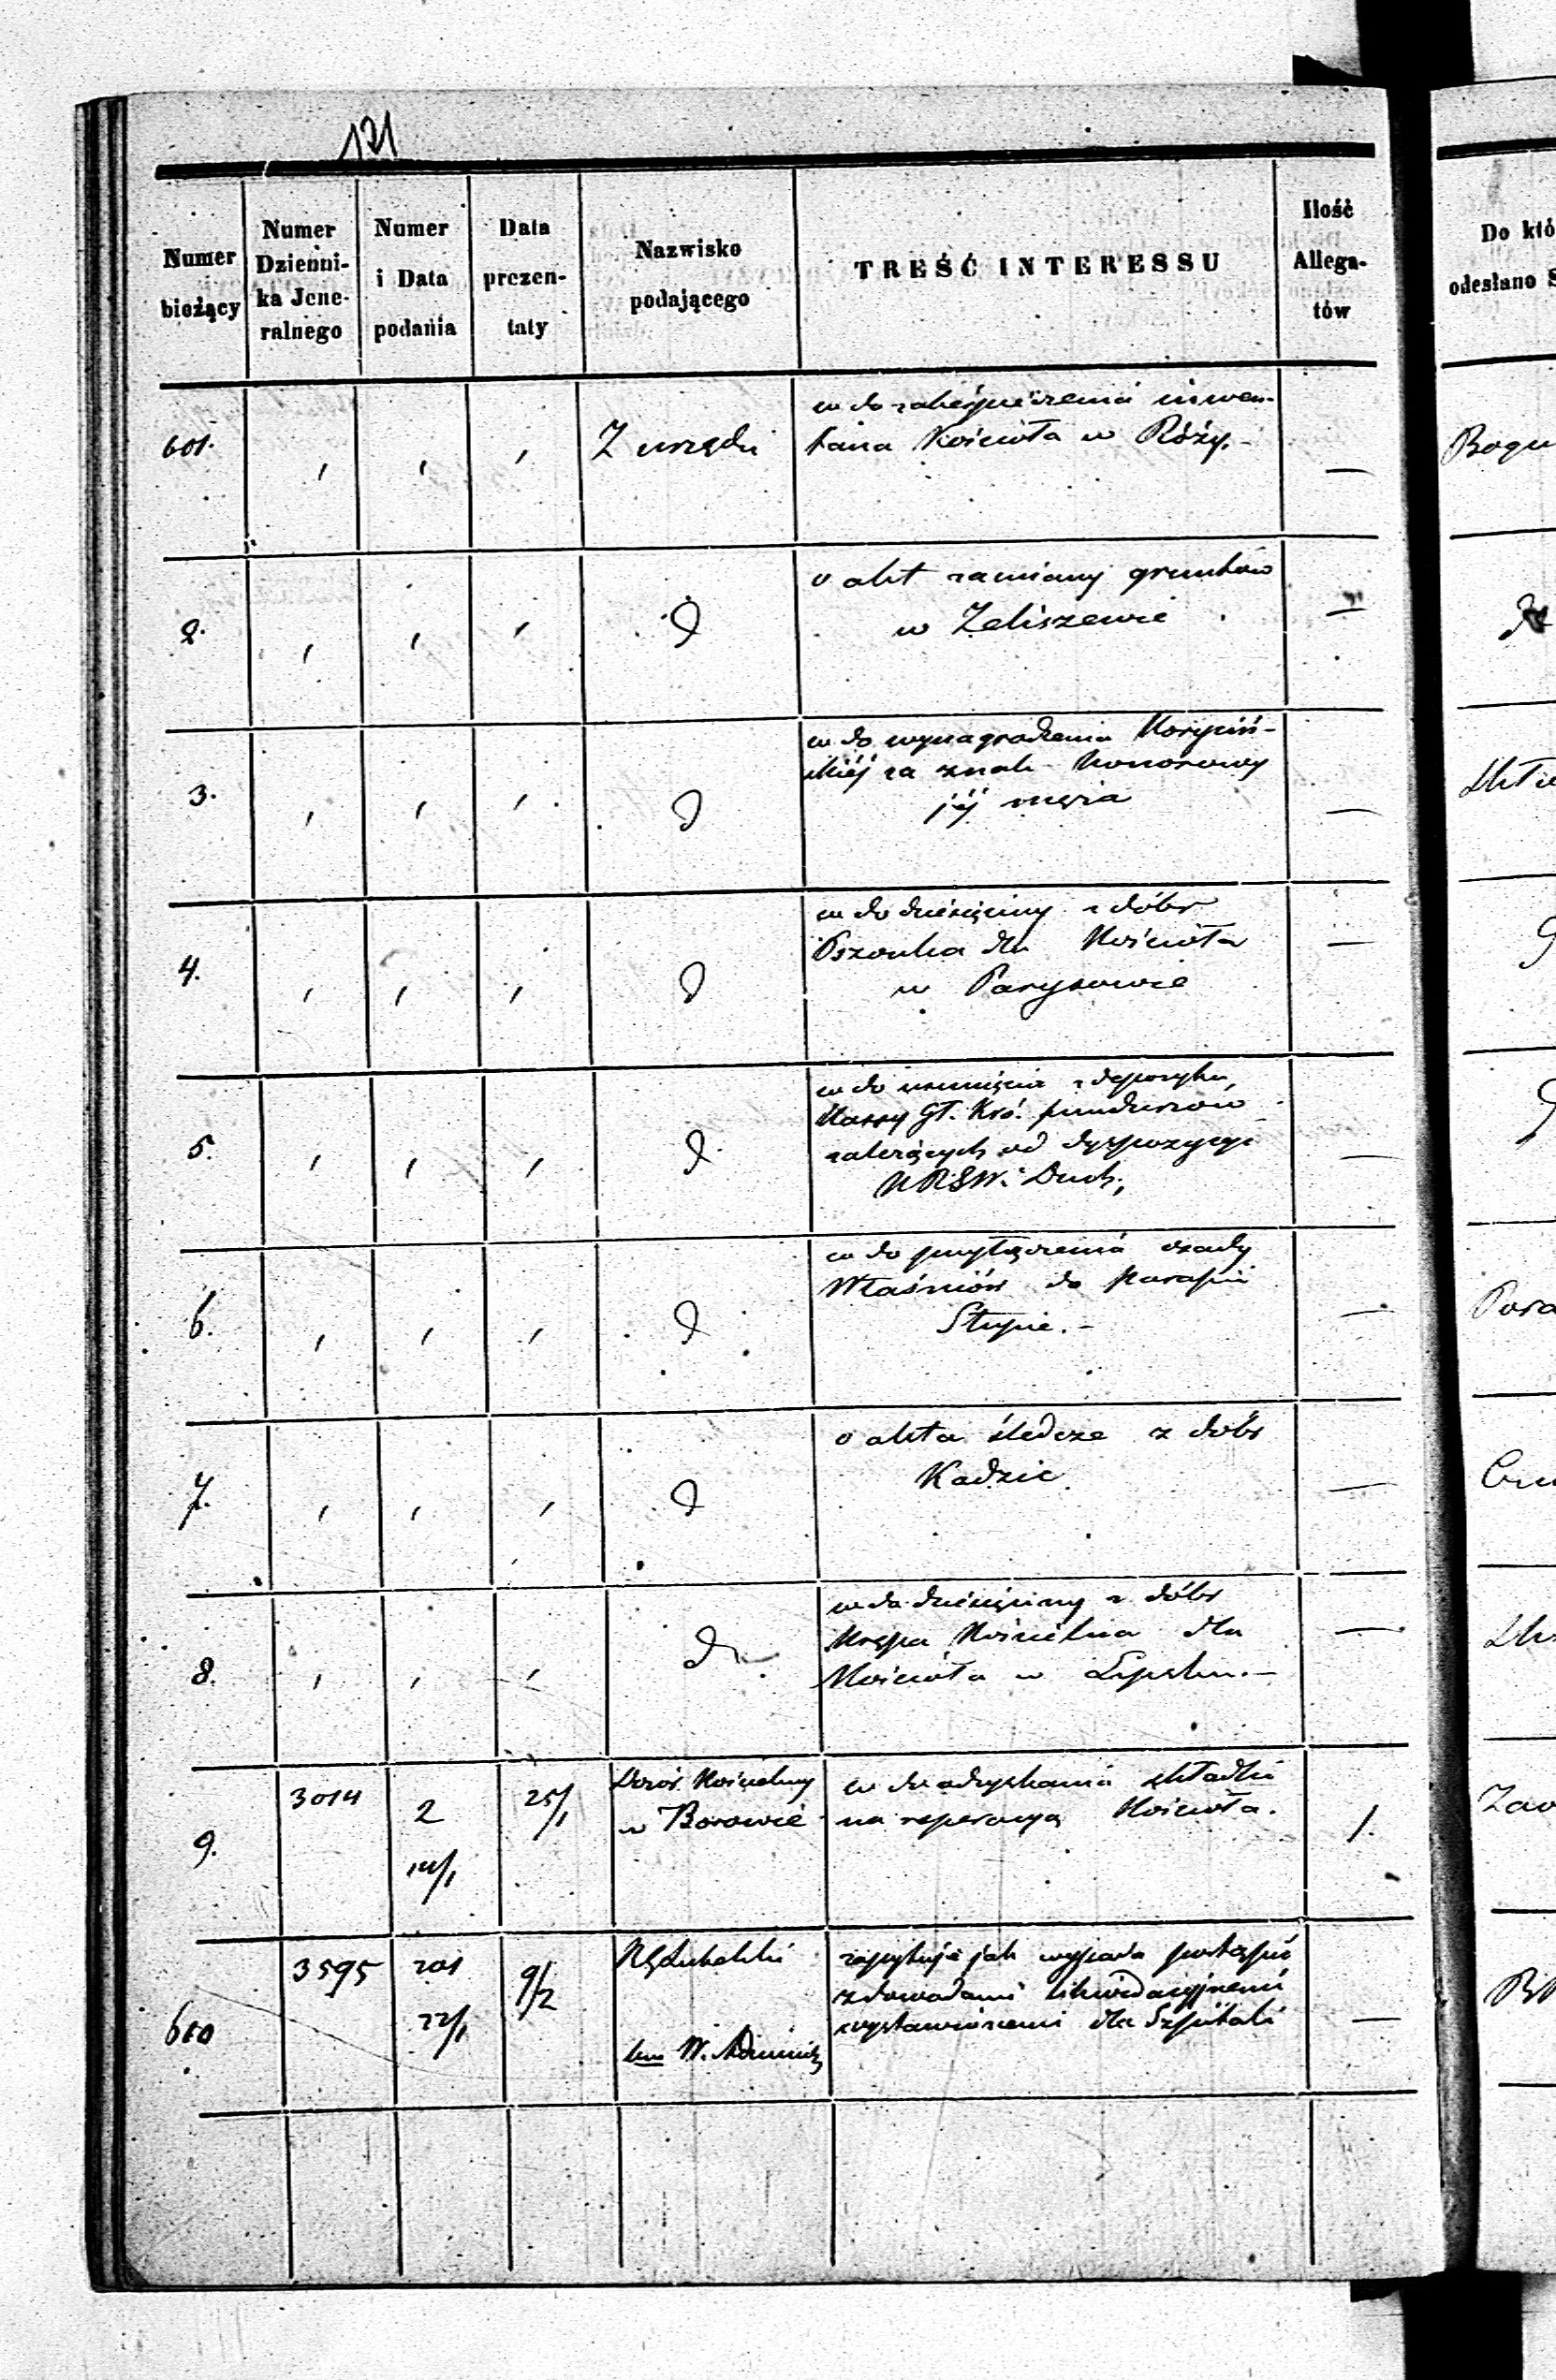 121
Numer bieżący
Numer Dzienni-
ka Jene-
ralnego
Numer
i Data
podania
Data
prezen-
taty
Nazwisko
podającego
TREŚĆ INTERESSU
Ilość
Allega-
tów
Do któ
odesłano S
601.
Z urzędu
w do zabezpieczenia inwen-
tarza Kościoła w Róży.-
—
Bogu
2.
o akt zamiany gruntów
w Zeliszewie
—
3.
w do wynagrodzenia
za znak honorowy
jéj męża
—
4.
w do dziesięciny z dóbr
Pszonka dla Kościoła
w Parysowie
—
5.
w do usunięcia z depozytu
Kassy Gł. Kró. funduszów
zależących od dyspozycyi
KRSW i Duch.
—
6.
w do przyłączenia osady
Właśniów do parafii
Stupie.-
—
Para
7.
o akta śledcze z dóbr
Kadzie
—
8.
w do dziesięciny z dóbr
Krępa Kościelna dla
Kościoła w Lipsku.-
—
9.
3014
2
14/1
25/1
Dozór Kościelny
w Borowie
w do odzyskania składki
na reperacyą Kościoła.
1.
610
3595
201
22/1
9/2
RG Lubelski
zapytuje jak wypada postąpić
z dowodami likwidacyjnemi
wystawionemi dla Szpitali
—